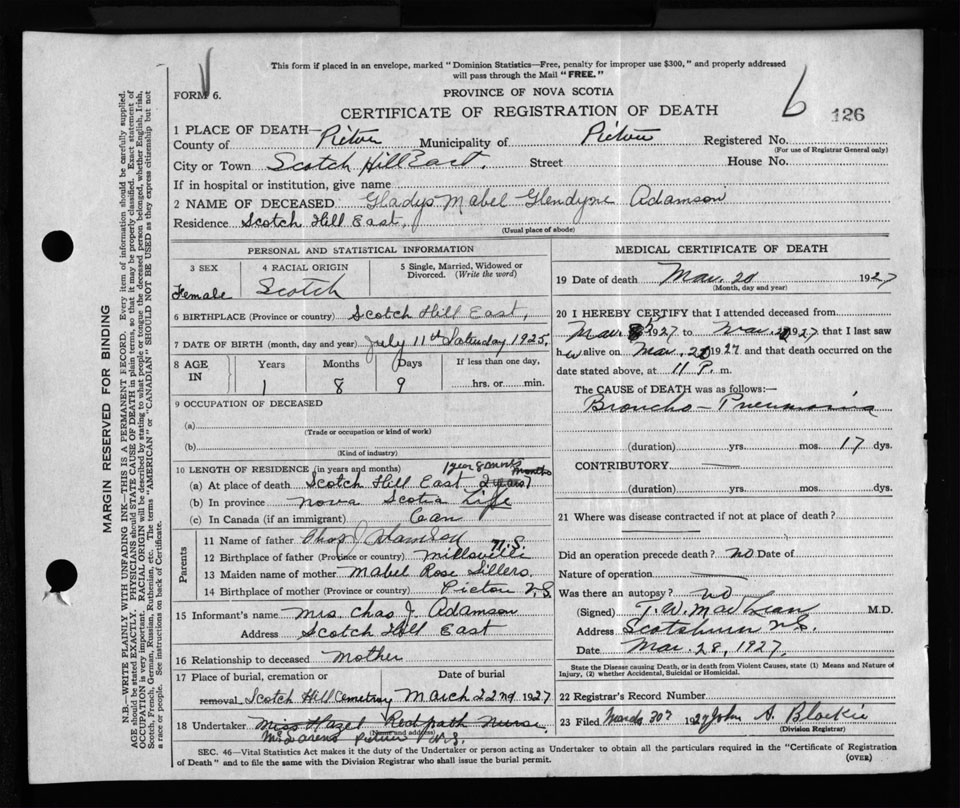 This form if placed in an envelope, marked "Dominion Statistics—Free, penalty for improper use $300," and properly addressed
will pass through the Mail "FREE."
FORM 6.
PROVINCE OF NOVA SCOTIA
6
126
CERTIFICATE OF REGISTRATION OF DEATH
1 PLACE OF DEATH—
County of Pictou Municipality of Pictou Registered No.
(For use of Registrar General only)
City or Town Scotch Hill East. Street House No.
If in hospital or institution, give name
2 NAME OF DECEASED Gladys Mabel Glendyne Adamson
Residence Scotch Hill East,
(Usual place of abode)
PERSONAL AND STATISTICAL INFORMATION
3 SEX 4 RACIAL ORIGIN 5 Single, Married, Widowed or
Divorced. (Write the word)
Female Scotch
6 BIRTHPLACE (Province or country) Scotch Hill East,
7 DATE OF BIRTH (month, day and year) July 11th Saturday 1925.
8 AGE IN Years Months Days If less than one day,
1 8 9 hrs. or min.
9 OCCUPATION OF DECEASED
(a)
(Trade or occupation or kind of work)
(b)
(Kind of industry)
10 LENGTH OF RESIDENCE (in years and months) 1 year 8 months
(a) At place of death Scotch Hill East 2 years
(b) In province Nova Scotia Life
(c) In Canada (if an immigrant) Can
Parents
11 Name of father Chas J Adamson
12 Birthplace of father (Province or country) Millsville N.S.
13 Maiden name of mother Mabel Rose Sillers.
14 Birthplace of mother (Province or country) Pictou N.S.
15 Informant's name Mrs. Chas J. Adamson
Address Scotch Hill East
16 Relationship to deceased Mother
17 Place of burial, cremation or Date of burial
removal. Scotch Hill Cemetery March 22nd 1927
18 Undertaker Miss Hazel Redpath Nurse
(Name and address)
McLarens Pictou N.S.
MEDICAL CERTIFICATE OF DEATH
19 Date of death Mar. 20 1927
(Month, day and year)
20 I HEREBY CERTIFY that I attended deceased from
Mar. 1927 to Mar. 20 1927 that I last saw
her alive on Mar. 20 1927 and that death occurred on the
date stated above, at 11 P. m.
The CAUSE of DEATH was as follows:—
Broncho-Pneumonia
(duration) yrs. mos. 17 dys.
CONTRIBUTORY —
(duration) yrs. mos. dys.
21 Where was disease contracted if not at place of death?
Did an operation precede death? no Date of
Nature of operation —
Was there an autopsy? no
(Signed) T. W. MacLean M.D.
Address Scotsburn N.S.
Date Mar. 28, 1927.
State the Disease causing Death, or in death from Violent Causes, state (1) Means and Nature of
Injury, (2) whether Accidental, Suicidal or Homicidal.
22 Registrar's Record Number
23 Filed March 30th 1927 John A. Blackie
(Division Registrar)
SEC. 46—Vital Statistics Act makes it the duty of the Undertaker or person acting as Undertaker to obtain all the particulars required in the "Certificate of Registration
of Death" and to file the same with the Division Registrar who shall issue the burial permit.
(OVER)
MARGIN RESERVED FOR BINDING
N.B.—WRITE PLAINLY WITH UNFADING INK—THIS IS A PERMANENT RECORD. Every item of information should be carefully supplied.
AGE should be stated EXACTLY. PHYSICIANS should STATE CAUSE OF DEATH in plain terms, so that it may be properly classified. Exact statement of
OCCUPATION is very important. RACIAL ORIGIN will be described by stating to what people or tongue the deceased person belonged, whether English, Irish,
Scotch, French, German, Russian, Ruthenian, etc. The terms "AMERICAN" or "CANADIAN" SHOULD NOT BE USED as they express citizenship but not
a race or people. See instructions on back of Certificate.